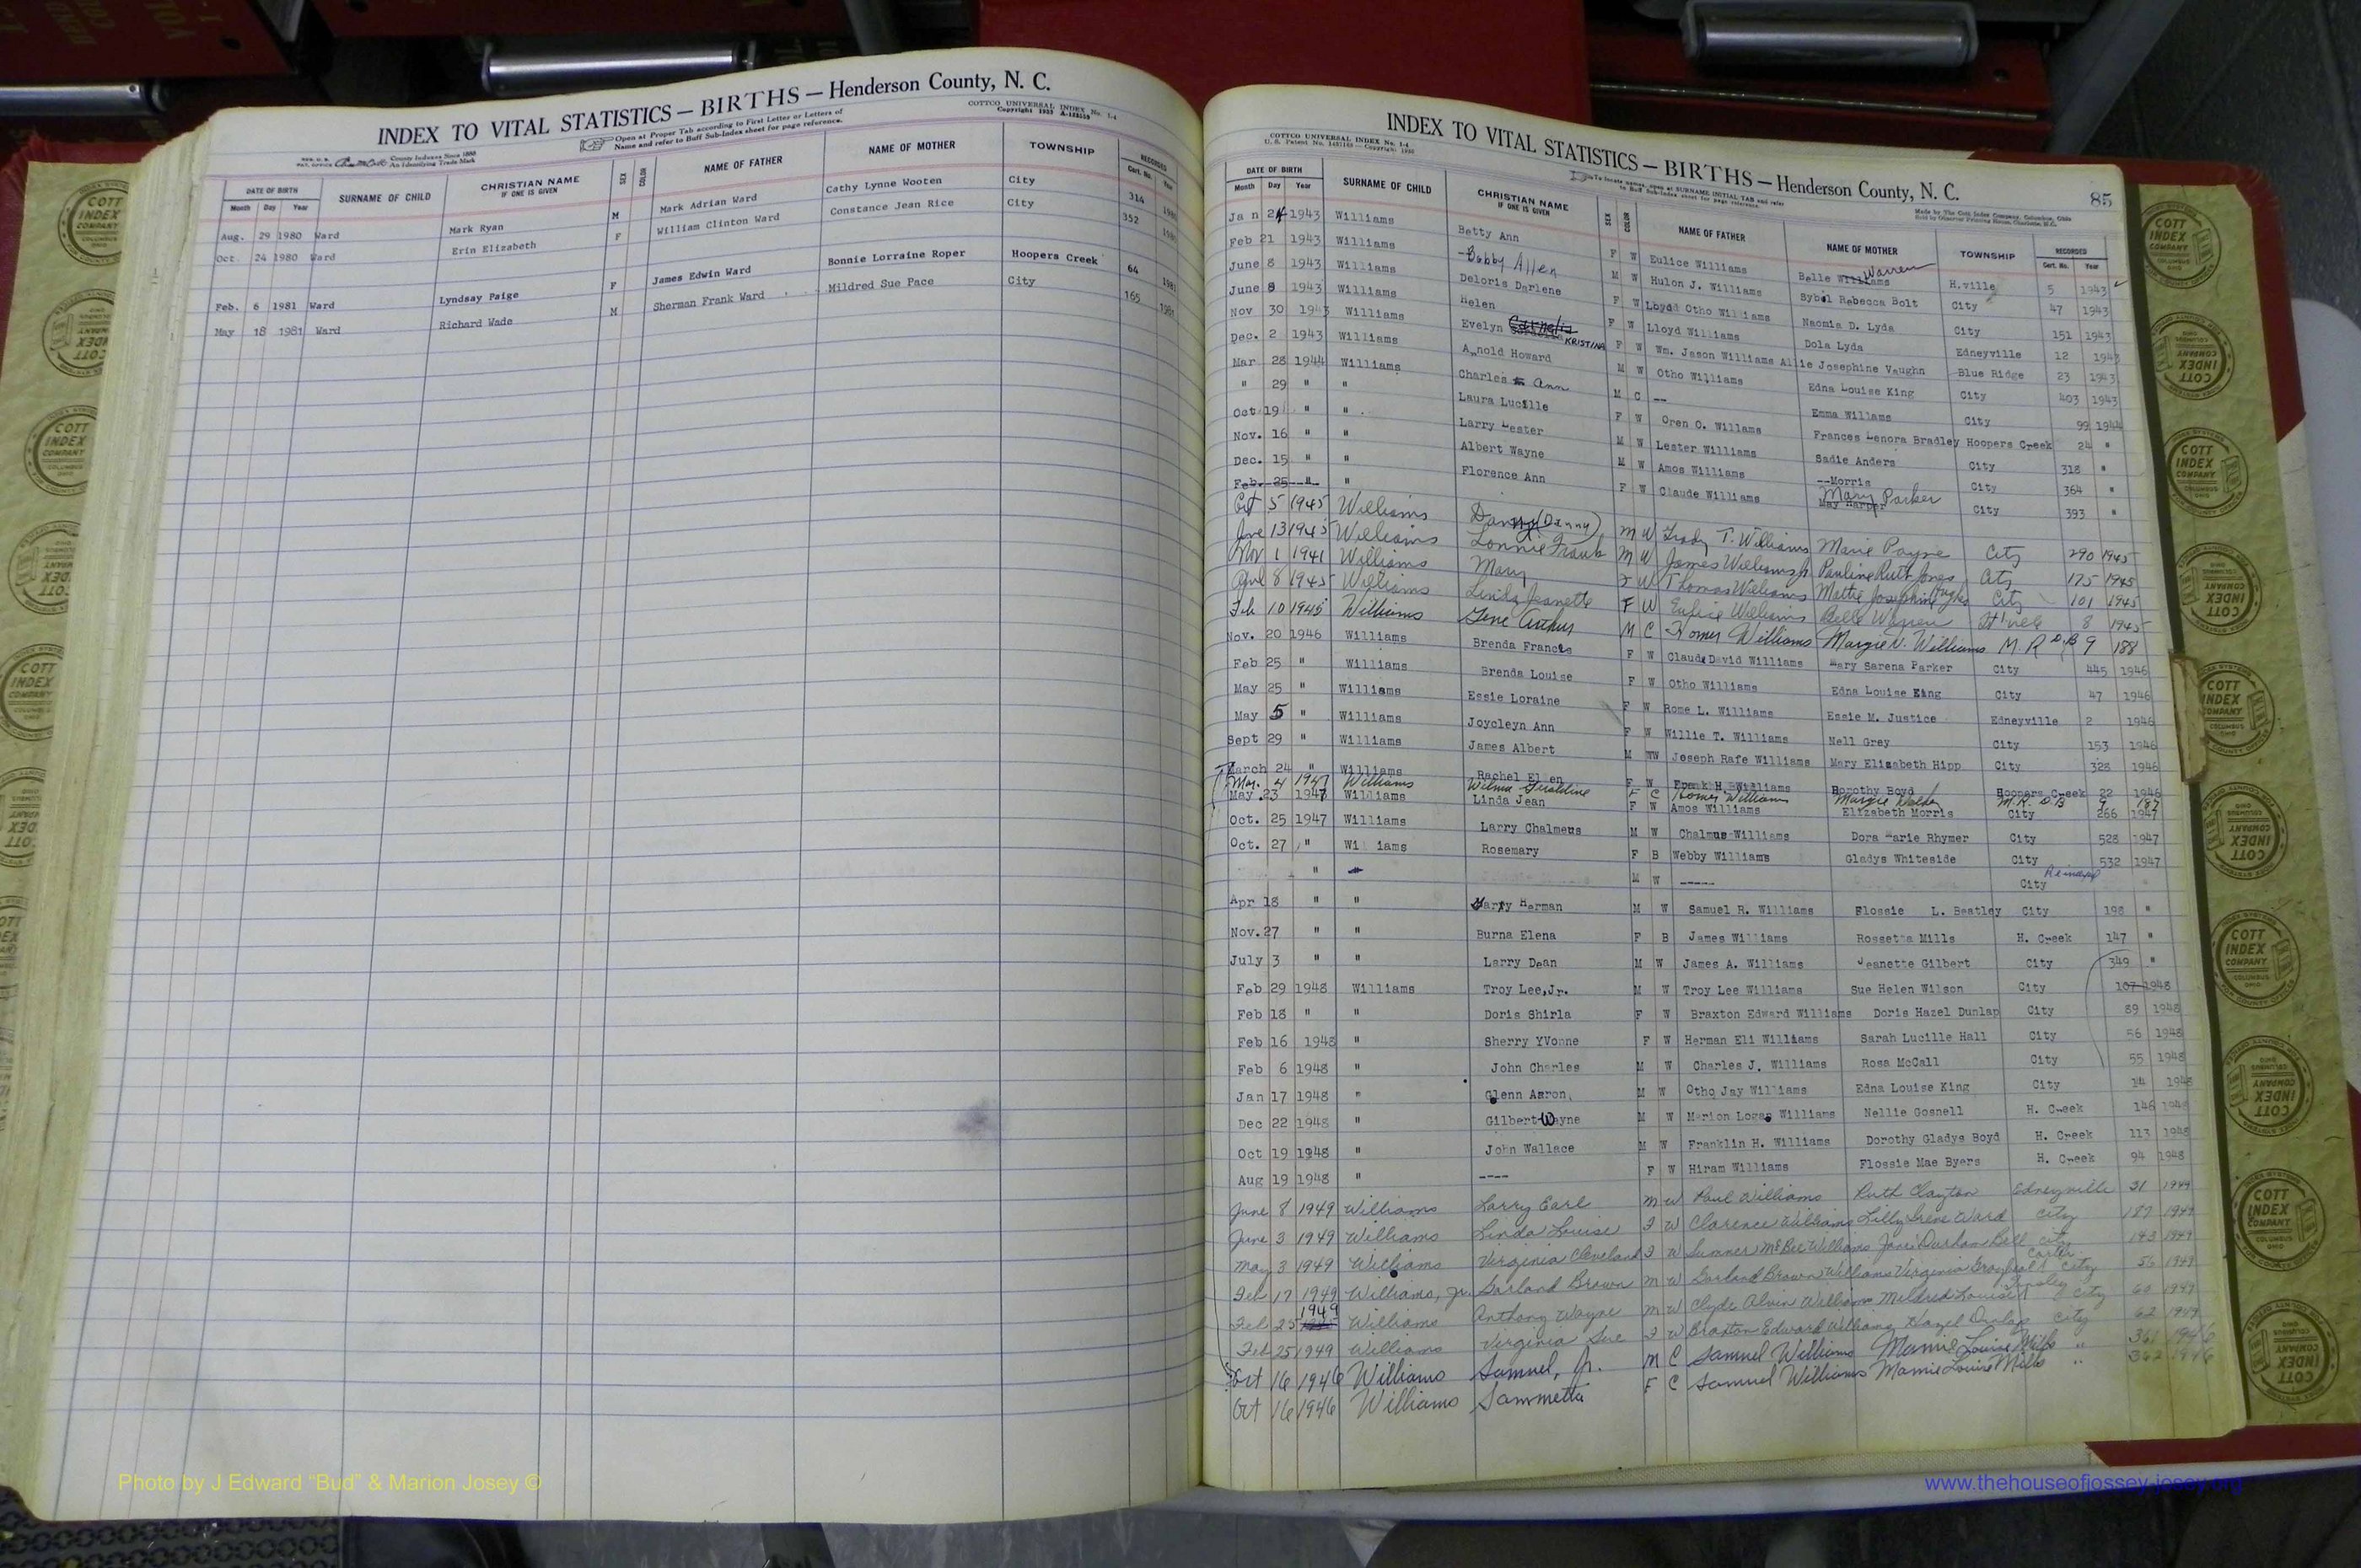 INDEX TO VITAL STATISTICS — BIRTHS — Henderson County, N. C.
COTTCO UNIVERSAL INDEX No. 1-4
Open at Proper Tab according to First Letter or Letters of
Name and refer to Buff Sub-Index sheet for page reference.
DATE OF BIRTH SURNAME OF CHILD CHRISTIAN NAME SEX COLOR NAME OF FATHER NAME OF MOTHER TOWNSHIP RECORDED
Month Day Year IF ONE IS GIVEN Cert. No. Year
Aug. 29 1980 Ward Mark Ryan M Mark Adrian Ward Cathy Lynne Wooten City 314 1980
Oct. 24 1980 Ward Erin Elizabeth F William Clinton Ward Constance Jean Rice City 352 1980
Feb. 6 1981 Ward Lyndsay Paige F James Edwin Ward Bonnie Lorraine Roper Hoopers Creek 64 1981
May 18 1981 Ward Richard Wade M Sherman Frank Ward Mildred Sue Pace City 165 1981
INDEX TO VITAL STATISTICS — BIRTHS — Henderson County, N. C. 85
COTTCO UNIVERSAL INDEX No. 1-4
DATE OF BIRTH SURNAME OF CHILD CHRISTIAN NAME SEX COLOR NAME OF FATHER NAME OF MOTHER TOWNSHIP RECORDED
Month Day Year IF ONE IS GIVEN Cert. No. Year
Jan 24 1943 Williams Betty Ann F W Eulice Williams Belle Warren H.ville 5 1943
Feb 21 1943 Williams Bobby Allen M W Hulon J. Williams Sybil Rebecca Bolt City 47 1943
June 8 1943 Williams Deloris Darlene F W Loydd Otho Williams Naomia D. Lyda City 151 1943
June 8 1943 Williams Helen F W Lloyd Williams Dola Lyda Edneyville 12 1943
Nov 30 1943 Williams Evelyn KRISTINA F W Wm. Jason Williams Allie Josephine Vaughn Blue Ridge 23 1943
Dec. 2 1943 Williams Arnold Howard M W Otho Williams Edna Louise King City 403 1943
Mar 28 1944 Williams Charles Ann M C -- Emma Willams City 99 1944
" 29 " " Laura Lucille F W Oren O. Willams Frances Lenora Bradley Hoopers Creek 24 "
Oct 19 " " Larry Lester M W Lester Williams Sadie Anders City 318 "
Nov. 16 " " Albert Wayne M W Amos Williams --Morris City 364 "
Dec. 15 " " Florence Ann F W Claude Williams Mary Parker City 393 "
Feb. 25 " "
Oct 5 1945 Williams Danny (Danny) M W Grady T. Williams Marie Payne City 290 1945
June 13 1945 Williams Lonnie Frank M W James Williams Jr. Pauline Ruth Jones City 175 1945
Nov 1 1941 Williams Mary F W Thomas Williams Mattie Josephine City 101 1945
April 8 1945 Williams Linda Jeanette F W Eulice Williams Belle Warren H'ville 8 1945
Feb 10 1945 Williams Gene Arthur M C Homer Williams Margie V. Williams M. R. D.B 9 188
Nov. 20 1946 Williams Brenda Francis F W Claude David Williams Mary Sarena Parker City 445 1946
Feb 25 " Williams Brenda Louise F W Otho Williams Edna Louise King City 47 1946
May 25 " Williams Essie Loraine F W Rome L. Williams Essie M. Justice Edneyville 2 1946
May 5 " Williams Joycleyn Ann F W Willie T. Williams Nell Grey City 153 1946
Sept 29 " Williams James Albert M WW Joseph Rafe Williams Mary Elizabeth Hipp City 328 1946
March 24 " Williams Rachel Ellen F W Frank H. Williams Dorothy Boyd Hoopers Creek 22 1946
Mar. 4 1947 Williams Wilma Geraldine F C Homer Williams Margie M.R. D.B 9 187
May 23 1947 Williams Linda Jean F W Amos Williams Elizabeth Morris City 266 1947
Oct. 25 1947 Williams Larry Chalmeus M W Chalmus Williams Dora Marie Rhymer City 528 1947
Oct. 27 " Wil iams Rosemary F B Webby Williams Gladys Whiteside City 532 1947
" M W ----- City
Apr 18 " " Harry Herman M W Samuel R. Williams Flossie L. Bestley City 198 "
Nov. 27 " " Burna Elena F B James Williams Rossetta Mills H. Creek 147 "
July 3 " " Larry Dean M W James A. Williams Jeanette Gilbert City 349 "
Feb 29 1948 Williams Troy Lee,Jr. M W Troy Lee Williams Sue Helen Wilson City 107 1948
Feb 18 " " Doris Shirla F W Braxton Edward Williams Doris Hazel Dunlap City 89 1948
Feb 16 1948 " Sherry YVonne F W Herman Eli Williams Sarah Lucille Hall City 56 1948
Feb 6 1948 " John Charles M W Charles J. Williams Rosa McCall City 55 1948
Jan 17 1948 " Glenn Aaron, M W Otho Jay Williams Edna Louise King City 14 1948
Dec 22 1948 " Gilbert Wayne M W Marion Logan Williams Nellie Gosnell H. Creek 146 1948
Oct 19 1948 " John Wallace M W Franklin H. Williams Dorothy Gladys Boyd H. Creek 113 1948
Aug 19 1948 " ---- F W Hiram Williams Flossie Mae Byers H. Creek 94 1948
June 8 1949 Williams Larry Earl M W Paul Williams Ruth Clayton Edneyville 31 1949
June 3 1949 Williams Linda Louise F W Clarence Williams Lilly Irene Ward City 187 1949
May 3 1949 Williams Virginia Cleveland F W Sumner McBee Williams Janie Durham Bell City 143 1949
Feb 17 1949 Williams, Jr. Garland Brown M W Garland Brown Williams Virginia City 56 1949
Feb 25 1949 Williams Anthony Wayne M W Clyde Alvin Williams Mildred Louise City 60 1949
Feb 25 1949 Williams Virginia Sue F W Braxton Edward Williams Hazel Dunlap City 62 1949
Oct 16 1946 Williams Samuel, Jr. M C Samuel Williams Mamie Louise Mills " 361 1946
Oct 16 1946 Williams Sammetta F C Samuel Williams Mamie Louise Mills " 362 1946
Photo by J Edward “Bud” & Marion Josey ©
www.thehouseofjossey-josey.org
COTT INDEX COMPANY COLUMBUS OHIO